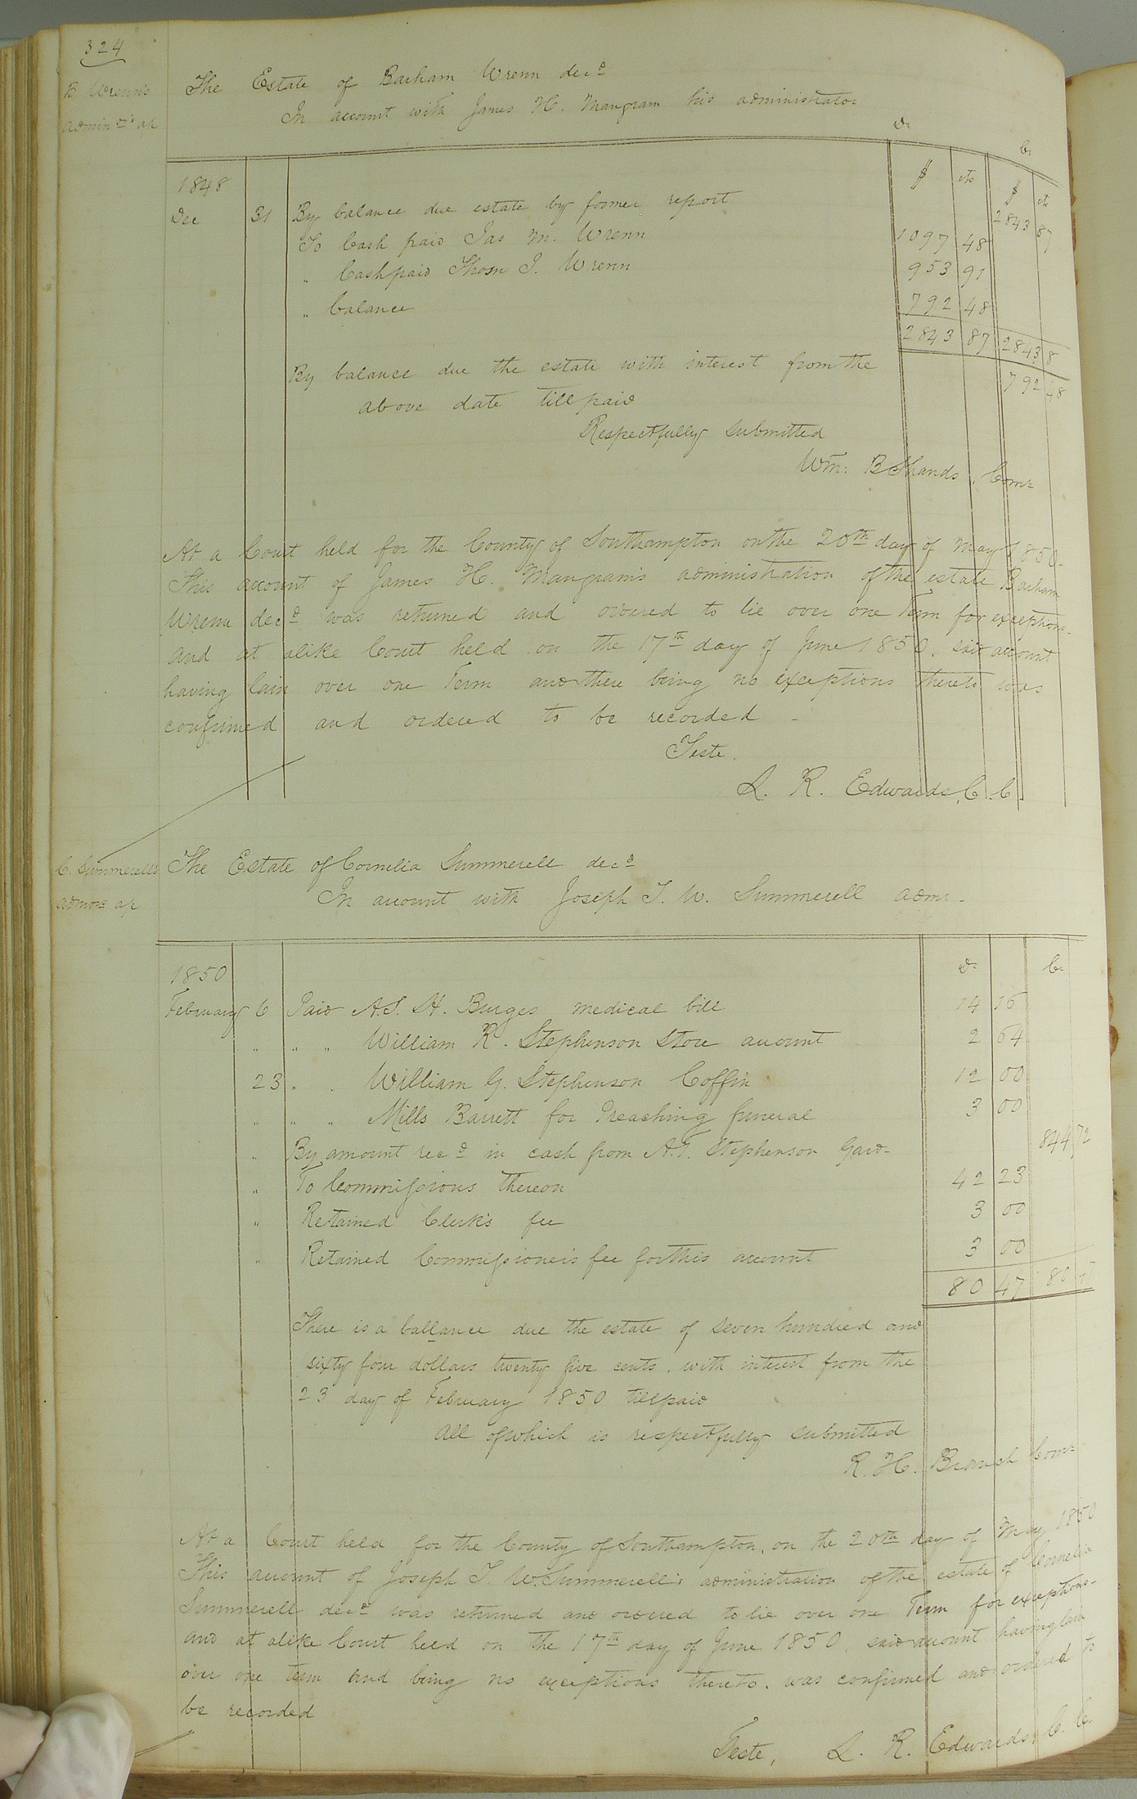 324
B. Wrenn's
admin r's ac
The Estate of Barham Wrenn decd
In account with James H. Mangram his administrator
Dr Cr
1848 $ cts $ cts
Dec 31 By balance due estate by former report 2843 87
To Cash paid Jas M. Wrenn 1097 48
" Cash paid Thom J. Wrenn 953 91
" balance 792 48
2843 87 2843 8
By balance due the estate with interest from the 792 48
above date till paid
Respectfully submitted
Wm. B Shands, Comr
At a Court held for the County of Southampton on the 20th day of May 1850.
This account of James H. Mangram's administration of the estate Barham
Wrenn decd was returned and ordered to lie over one Term for exceptions.
and at alike Court held on the 17th day of June 1850, said account
having lain over one Term and there being no exceptions thereto was
confirmed and ordered to be recorded -
Teste.
L. R. Edwards, C. C.
C. Summerell's
admors ac
The Estate of Cornelia Summerell decd
In account with Joseph T. W. Summerell admr.
1850 Dr Cr
February 6 Paid A. S. H. Burges medical bill 14 16
" " " William R. Stephenson Store account 2 64
23 " " William G. Stephenson Coffin 12 00
" " " Mills Barrett for Preaching funeral 3 00
" By amount recd in cash from A. T. Stephenson Gard- 844 72
" To Commissions thereon 42 23
" Retained Clerk's fee 3 00
" Retained Commissioners fee for this account 3 00
80 47 80 47
There is a ballance due the estate of seven hundred and
sixty four dollars twenty five cents, with interest from the
23 day of February 1850 till paid
All of which is respectfully submitted
R. H. Branch Comr
At a Court held for the County of Southampton, on the 20th day of May 1850
This account of Joseph T. W. Summerell's administration of the estate of Cornelia
Summerell decd was returned and ordered to lie over one Term for exceptions-
and at alike Court held on the 17th day of June 1850, said account having lain
over one term and being no exceptions thereto, was confirmed and ordered to
be recorded
Teste, L. R. Edwards, C. C.